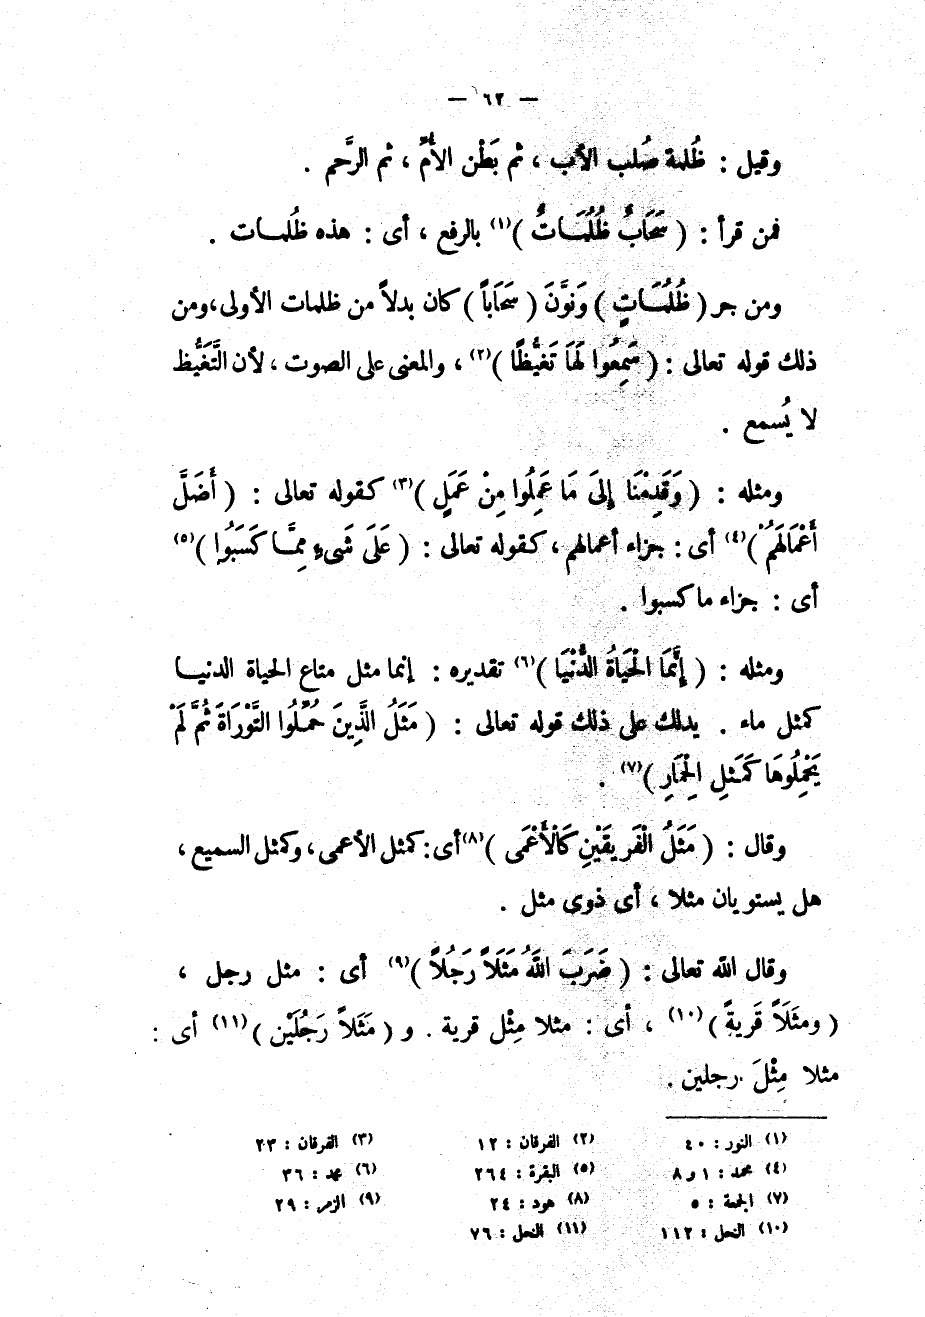 — ٦٢ —
وقيل : ظُلمة صُلب الأب ، ثم بَطْن الأُمِّ ، ثم الرَّحم .
فمن قرأ : ( سَحَابٌ ظُلُمَـاتٌ )(١) بالرفع ، أى : هذه ظُلمـات .
ومن جر ( ظُلُمَـاتٍ ) وَنوَّنَ ( سَحَاباً ) كان بدلاً من ظلمات الأولى،ومن
ذلك قوله تعالى : ( سَمِعُوا لَهَا تَغيُّظًا )(٢) ، والمعنى على الصوت ، لأن التَّغَيُّظ
لا يُسمع .
ومثله : ( وَقَدِمْنَا إِلىَ مَا عَمِلُوا مِنْ عَمَلٍ )(٣) كقوله تعالى : ( أَضَلَّ
أَعْمَالَهُمْ )(٤) أى : جزاء أعمالهم ، كقوله تعالى : ( عَلَى شَىءٍ مِمَّـا كَسَبُوا )(٥)
أى : جزاء ما كسبوا .
ومثله : ( إِنَّمَا الْحَيَاةُ الدُّنْيَا )(٦) تقديره : إنما مثل متاع الحياة الدنيـا
كمثل ماء . يدلك على ذلك قوله تعالى : ( مَثَلُ الَّذِينَ حُمِّلُوا التَّوْرَاةَ ثُمَّ لَمْ
يَحْمِلُوهَا كَمَـثلِ الْحِمَارِ )(٧) .
وقال : ( مَثَلُ الْفَرِيقَيْنِ كَالْأَعْمَى )(٨)أى:كمثل الأعمى،وكمثل السميع،
هل يستويان مثلا ، أى ذوى مثل .
وقال الله تعالى : ( ضَرَبَ اللَّهُ مَثَلاً رَجُلاً )(٩) أى : مثل رجل ،
( ومثَلَاً قَريةً )(١٠) ، أى : مثلا مِثْل قرية . و ( مَثَلاً رَجُلَيْن )(١١) أى :
مثلا مِثْلَ رجلين .
(١) النور : ٤٠ (٢) الفرقان : ١٢ (٣) الفرقان : ٢٣
(٤) محمد : ١ و ٨ (٥) البقرة : ٢٦٤ (٦) محمد : ٣٦
(٧) الجمعة : ٥ (٨) هود : ٢٤ (٩) الزمر : ٢٩
(١٠) النحل : ١١٢ (١١) النحل : ٧٦